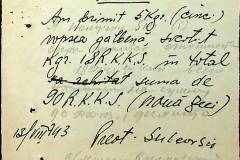 Am primit 5 Kgr. (cinci)
vopsea galbenă, socotit
Kgr. 18 R.K.K.S. în total
suma de
90 R.K.K.S. (nouă zeci)
18/VII 943 Preot.